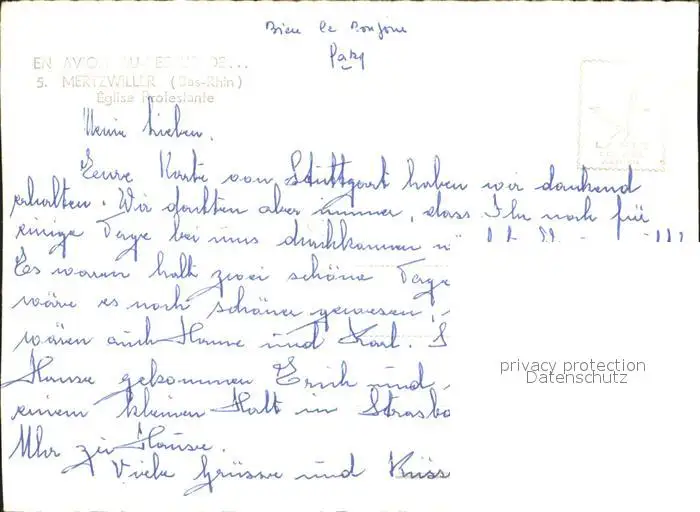 Bien le Bonjour
EN AVION AU-DESSUS DE...
5. MERTZWILLER (Bas-Rhin)
Église Protestante
Meine Lieben.
Eure Karte von Stuttgart haben wir dankend
erhalten. Wir dachten aber immer, dass Ihr noch für
einige Tage bei uns durchkommen
Es waren halt zwei schöne Tage
wäre es noch schöner gewesen,
wären auch Hanne und Karl.
Hause gekommen Erich und
einem kleinen Halt in Strasbo
Uhr zu Hause.
Viele Grüsse und Küss
privacy protection
Datenschutz